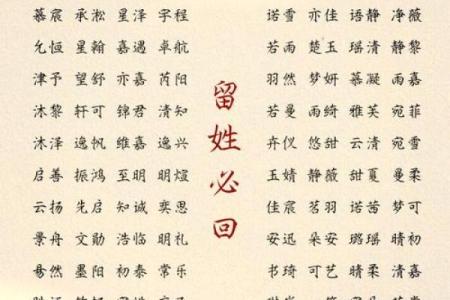 慕宸 承淞 星泽 宇程 诺雪 亦佳 语静 净薇
允恒 星翰 嘉遇 卓航 若雨 楚玉 瑶清 静
津予 望舒 亦嘉 芮阳 羽然 梦妍 慕凝 雨嘉
沐黎 轩可 锦君 清知 若曼 雨绮 雅芙 宛菲
沐泽 逸帆 维嘉 逸兴 卉仪 悠甜 云清 宛雪
启善 振鸿 至明 明煊 玉婧 静薇 甜夏 曼柔
云扬 先启 知诚 奕思 佳宸 茗羽 诺茜 梦可
景舟 文勋 浩临 明礼 安 朵安 璐瑶 晴初
易然 墨阳 初泰 常乐 书琦 可艺 晴柔 清嘉
留姓必回